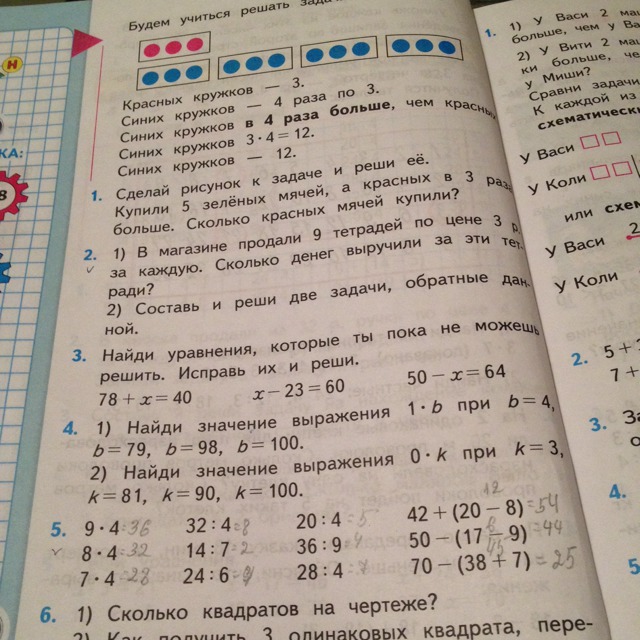 Будем учиться решать
Красных кружков — 3.
Синих кружков — 4 раза по 3.
Синих кружков в 4 раза больше, чем
Синих кружков 3 · 4 = 12.
Синих кружков — 12.
1. Сделай рисунок к задаче и реши её.
Купили 5 зелёных мячей, а красных в 3
больше. Сколько красных мячей купили?
2. 1) В магазине продали 9 тетрадей по цене 3 р.
за каждую. Сколько денег выручили за эти тет-
ради?
2) Составь и реши две задачи, обратные дан-
ной.
3. Найди уравнения, которые ты пока не можешь
решить. Исправь их и реши.
78 + x = 40 x − 23 = 60 50 − x = 64
4. 1) Найди значение выражения 1 · b при b = 4,
b = 79, b = 98, b = 100.
2) Найди значение выражения 0 · k при k = 3,
k = 81, k = 90, k = 100.
12
5. 9 · 4 =36 32 : 4 =8 20 : 4 =5 42 + (20 − 8) =54
8
8 · 4 =32 14 : 7 =2 36 : 9 50 − (17 − 9) =44
45
7 · 4 =28 24 : 6 28 : 4 70 − (38 + 7) =25
6. 1) Сколько квадратов на чертеже?
2) Как получить 3 одинаковых квадрата, пере-
КА:
Н
8
1. 1) У Васи 2
больше, чем у
2) У Вити 2
ки больше,
у Миши?
Сравни задачи
К каждой из
схематически
У Васи
У Коли
или
У Васи 2
У Коли
2. 5 +
7 +
3.
4.
5